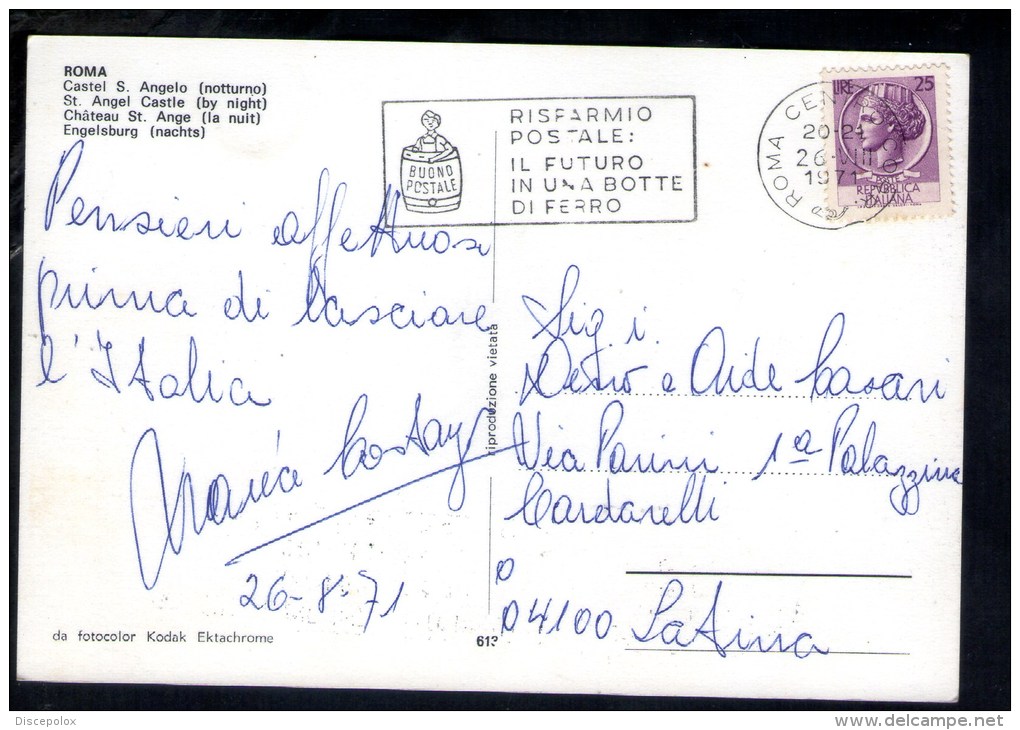 ROMA
Castel S. Angelo (notturno)
St. Angel Castle (by night)
Château St. Ange (la nuit)
Engelsburg (nachts)
BUONO
POSTALE
RISPARMIO
POSTALE:
IL FUTURO
IN UNA BOTTE
DI FERRO
ROMA CENTRO
20-21
26·VIII
1971
LIRE 25
POSTE
REPVBBLICA
ITALIANA
Pensieri affettuosi
prima di lasciare
l'Italia
26-8-71
Sig i
e Aide Casari
Via Parini 1ª Palazzina
Cardarelli
04100 Latina
riproduzione vietata
da fotocolor Kodak Ektachrome
613
Discepolox
delcampe.net